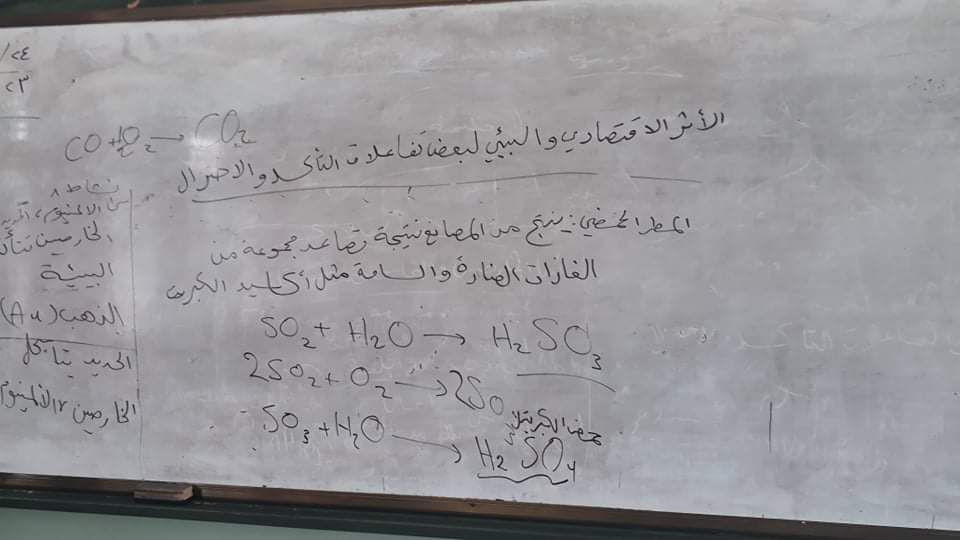 الأثر الاقتصادي والبيئي لبعض تفاعلات التأكسد والاختزال
المطر الحمضي: ينتج من المصانع نتيجة تصاعد مجموعة من
الغازات الضارة والسامة مثل أكاسيد الكبريت
SO₂ + H₂O → H₂SO₃
2SO₂ + O₂ → 2SO
SO₃ + H₂O → H₂SO₄
حمض الكبريتيك
CO + O₂ → CO₂
٢٤/
٢٣
نشاط ٨
الألمنيوم،
الخارصين
البيئة
الذهب (Au)
الحديد يتآكل
الخارصين والألمنيوم